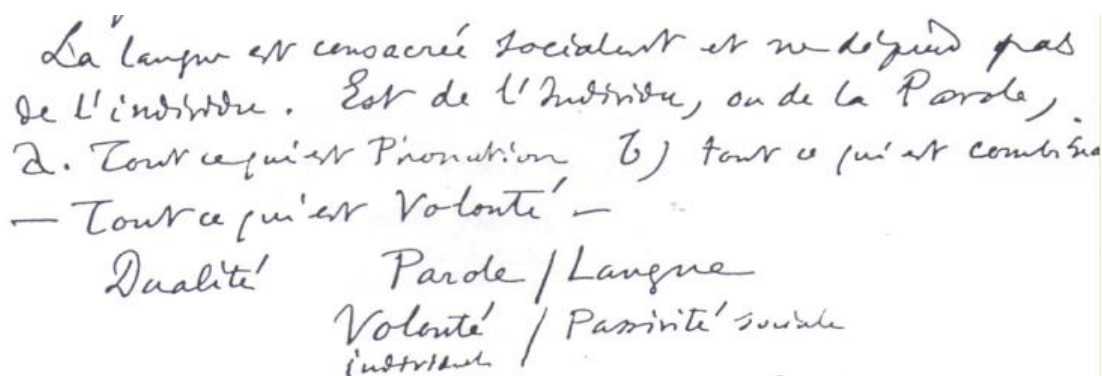 La langue est consacrée socialement et ne dépend pas
de l'individu. Est de l'Individu, ou de la Parole,
a. Tout ce qui est Phonation b) tout ce qui est combina
— Tout ce qui est Volonté —
Dualité Parole / Langue
Volonté / Passivité sociale
individuelle